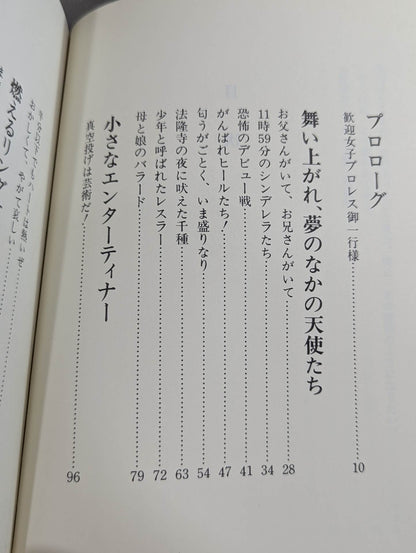 プロローグ
歓迎女子プロレス御一行様……10
舞い上がれ、夢のなかの天使たち
お父さんがいて、お兄さんがいて……28
11時59分のシンデレラたち……34
恐怖のデビュー戦……41
がんばれヒールたち!……47
匂うがごとく、いま盛りなり……54
法隆寺の夜に吠えた千種……63
少年と呼ばれたレスラー……72
母と娘のバラード……79
小さなエンターティナー
真空投げは芸術だ!……96
燃えるリング
おかしくて、やがて哀しい